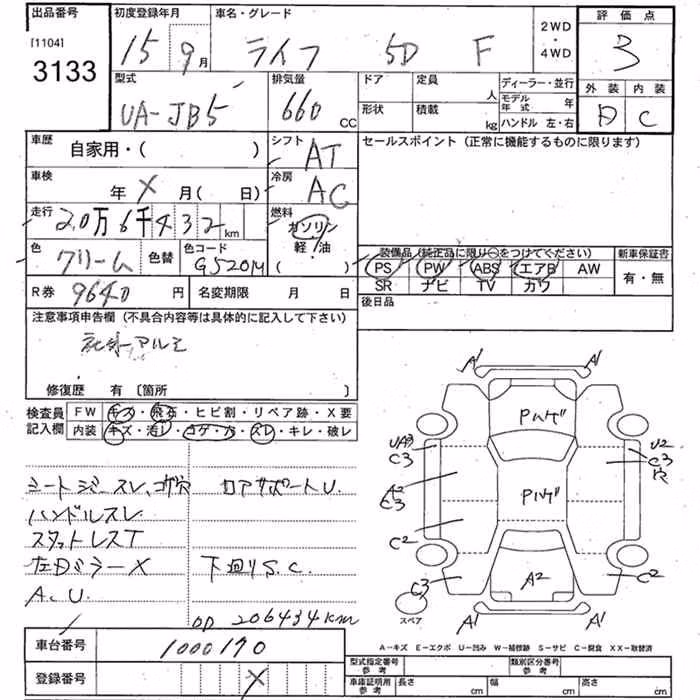 出品番号 初度登録年月 車名・グレード 評価点
[1104]
3133
15 9月 ライフ 5D F 2WD・4WD 3
型式 排気量 ドア 定員 人 ディーラー・並行 外装 内装
UA-JB5 660 CC 形状 積載 kg モデル年式 年 D C
ハンドル 左・右
車歴 自家用・( ) シフト AT セールスポイント (正常に機能するものに限ります)
車検 年 X 月( 日) 冷房 AC
走行 2.0万 6千 4 3 2 km 燃料 ガソリン 軽・油 ( )
色 クリーム 色替 色コード G520M
装備品 (純正品に限り○をつけてください) 新車保証書
PS PW ABS エアB AW 有・無
SR ナビ TV カワ
R券 9640 円 名変期限 月 日 後日品
注意事項申告欄 (不具合内容等は具体的に記入して下さい)
社外アルミ
修復歴 有 〔箇所 〕
検査員記入欄 FW キズ・飛石・ヒビ割・リペア跡・X要
内装 キズ・汚レ・コゲ・穴・スレ・キレ・破レ
シートジミースレ、コゲ穴 ロアサポートU.
ハンドルスレ
スタットレスT
左Dミラー X 下廻りS.C.
A.U.
OD 206434km
車台番号 1000170
登録番号 X
A1 A1
PムゲPムゲ
UA3 C3
U2 C3 穴
A2 C3
C2
C3 A2 C2
スペア A1 A1
A-キズ E-エクボ U-凹み W-補修跡 S-サビ C-腐食 XX-取替済
型式指定番号 参考 類別区分番号 参考
車庫証明用 参考 長さ cm 幅 cm 高さ cm